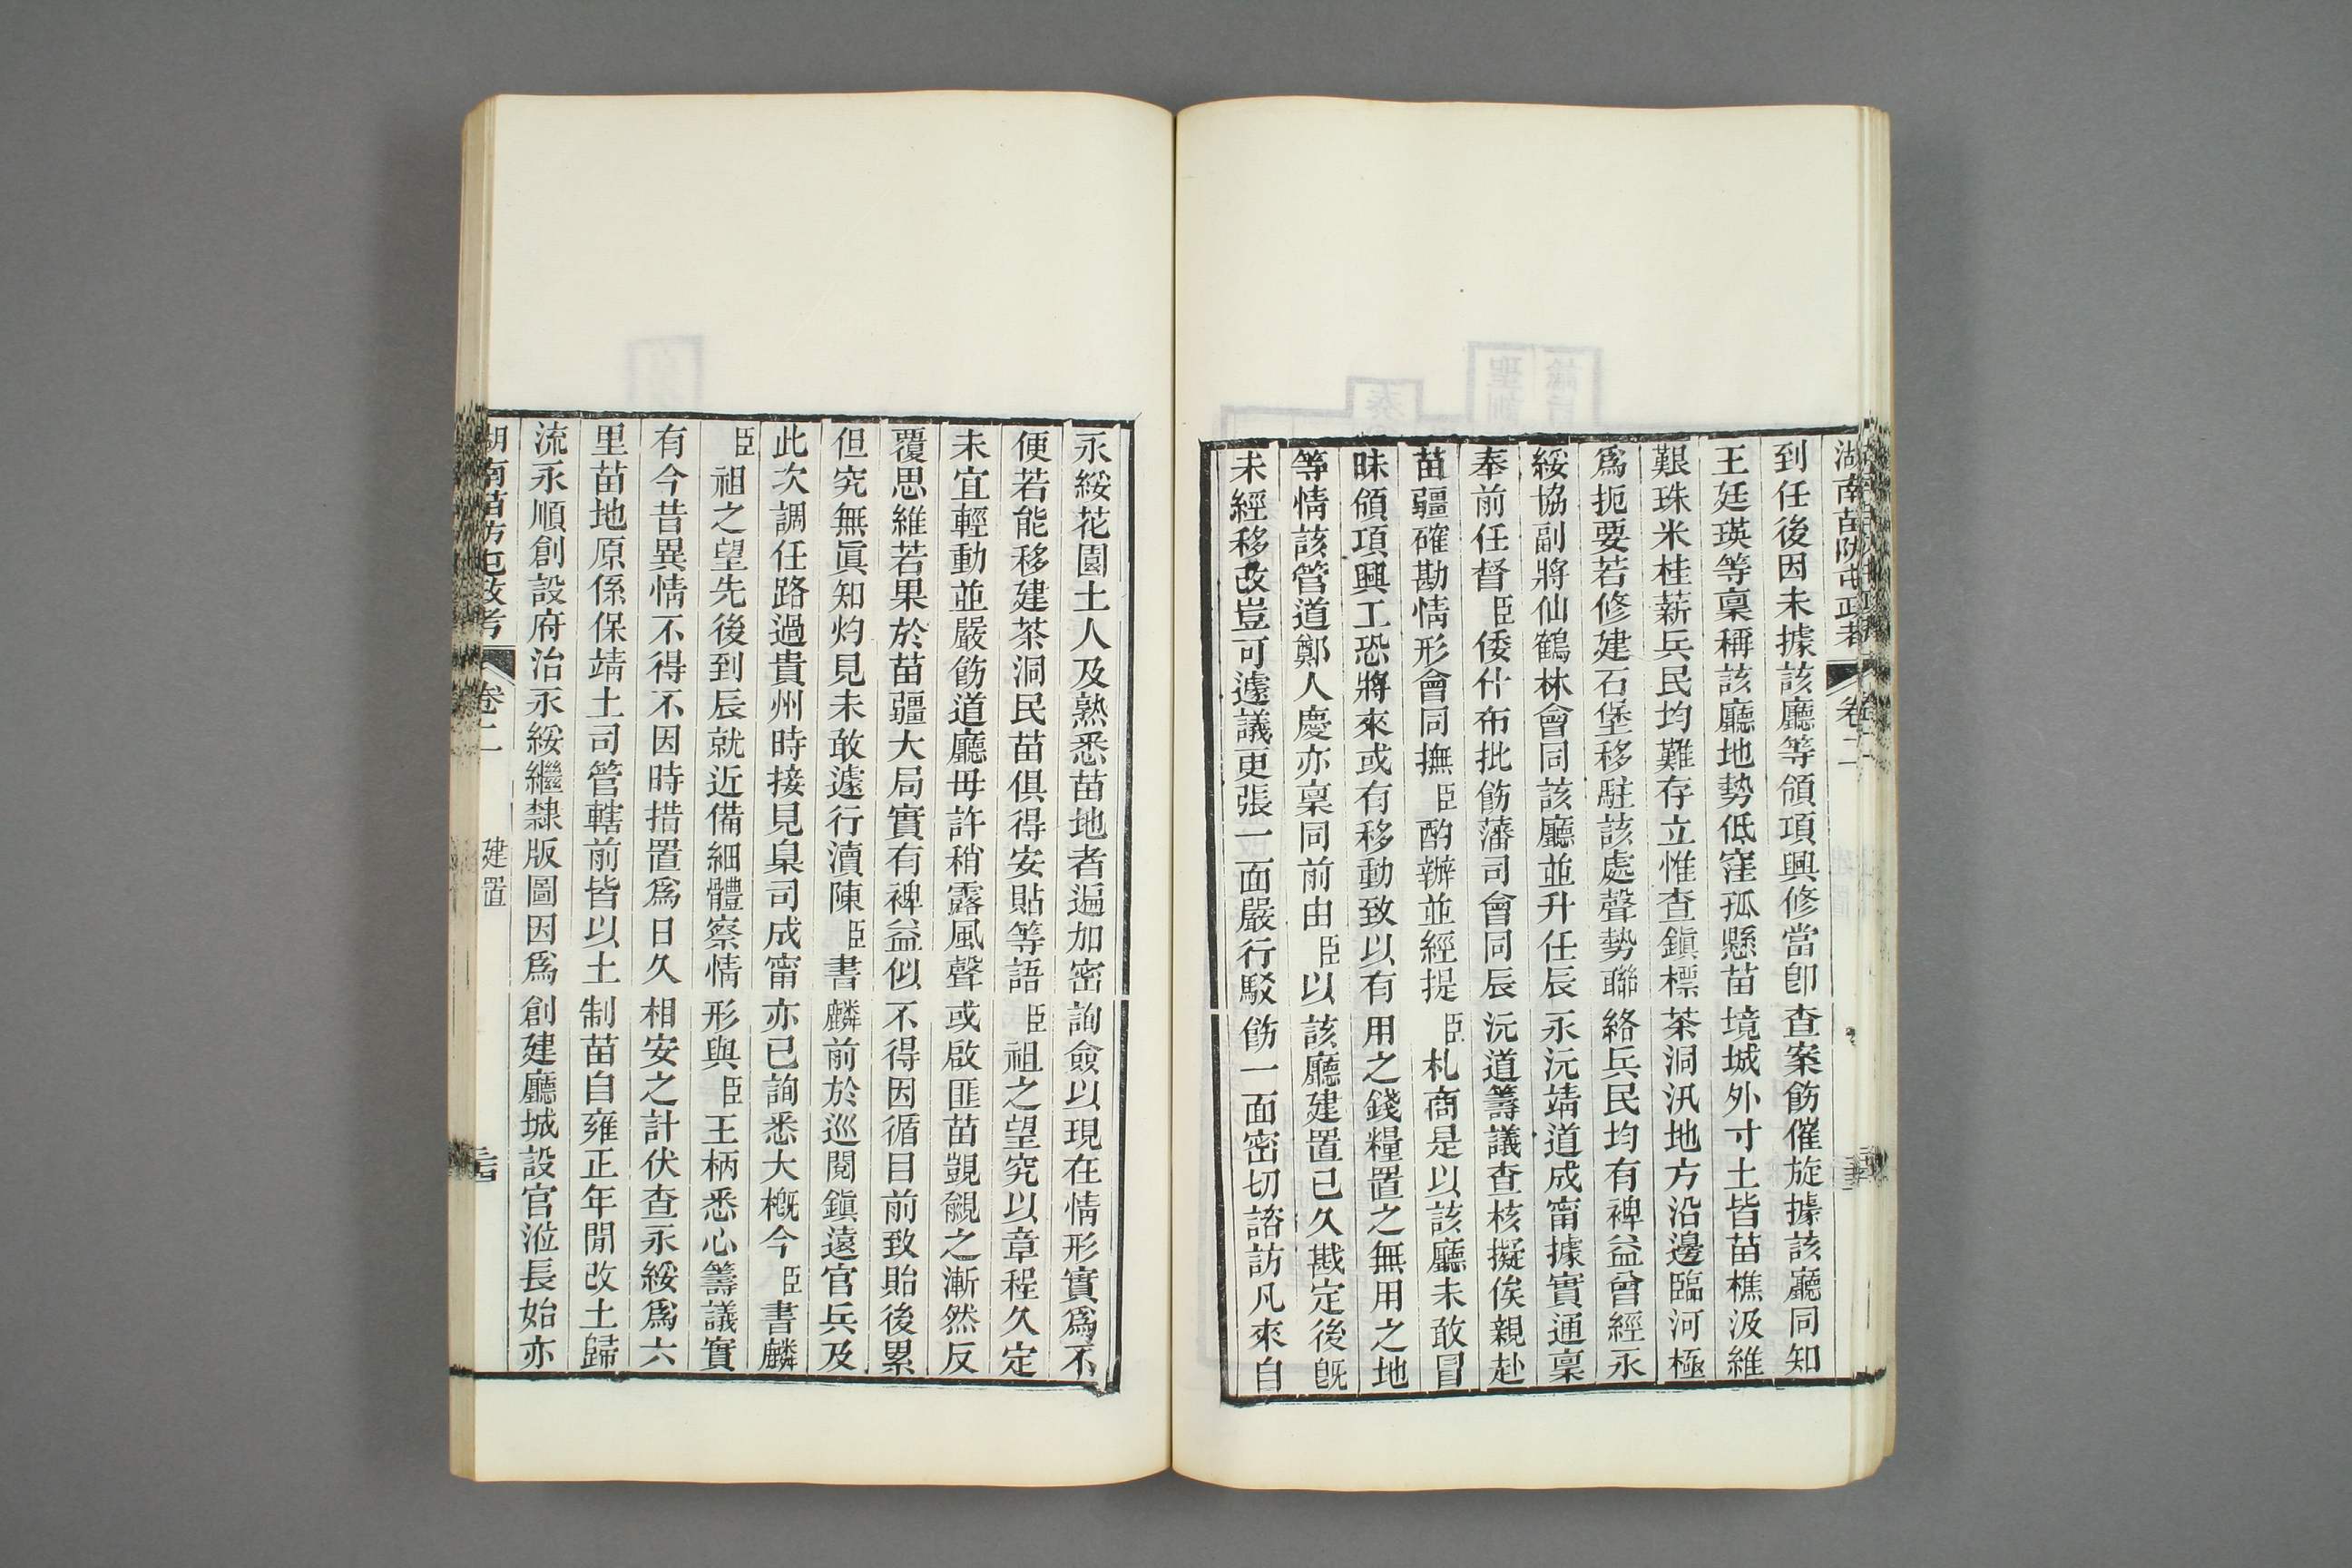 湖南苗防屯政考 卷二
到任後因未據該廳等領項興修當卽查案飭催旋據該廳同知
王廷瑛等稟稱該廳地勢低窪孤懸苗境城外寸土皆苗樵汲維
艱珠米桂薪兵民均難存立惟查鎭標茶洞汛地方沿邊臨河極
爲扼要若修建石堡移駐該處聲勢聯絡兵民均有裨益曾經永
綏協副將仙鶴林會同該廳並升任辰永沅靖道成甯據實通稟
奉前任督臣倭什布批飭藩司會同辰沅道籌議查核擬俟親赴
苗疆確勘情形會同撫臣酌辦並經提臣札商是以該廳未敢冒
昧領項興工恐將來或有移動致以有用之錢糧置之無用之地
等情該管道鄭人慶亦稟同前由臣以該廳建置已久戡定後旣
未經移改豈可遽議更張一面嚴行駁飭一面密切諮訪凡來自
永綏花園土人及熟悉苗地者遍加密詢僉以現在情形實爲不
便若能移建茶洞民苗俱得安貼等語臣祖之望究以章程久定
未宜輕動並嚴飭道廳毋許稍露風聲或啟匪苗覬覦之漸然反
覆思維若果於苗疆大局實有裨益似不得因循目前致貽後累
但究無眞知灼見未敢遽行瀆陳臣書麟前於巡閱鎭遠官兵及
此次調任路過貴州時接見臬司成甯亦已詢悉大槪今臣書麟
臣祖之望先後到辰就近備細體察情形與臣王柄悉心籌議實
有今昔異情不得不因時措置爲日久相安之計伏查永綏爲六
里苗地原係保靖土司管轄前皆以土制苗自雍正年閒改土歸
流永順創設府治永綏繼隸版圖因爲創建廳城設官涖長始亦
湖南苗防屯政考 卷二 建置